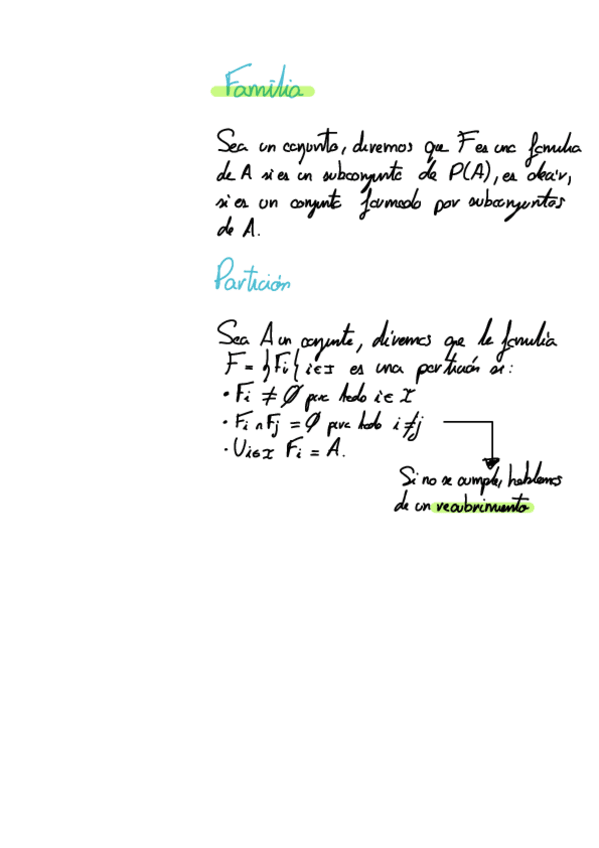 Familia
Sea un conjunto, diremos que F es una familia
de A si es un subconjunto de P(A), es decir,
si es un conjunto formado por subconjuntos
de A.
Partición
Sea A un conjunto, diremos que la familia
F = {Fi} i∈I es una partición si:
• Fi ≠ ∅ para todo i∈I
• Fi ∩ Fj = ∅ para todo i≠j
• Ui∈I Fi = A.
Si no se cumple, hablamos
de un recubrimiento